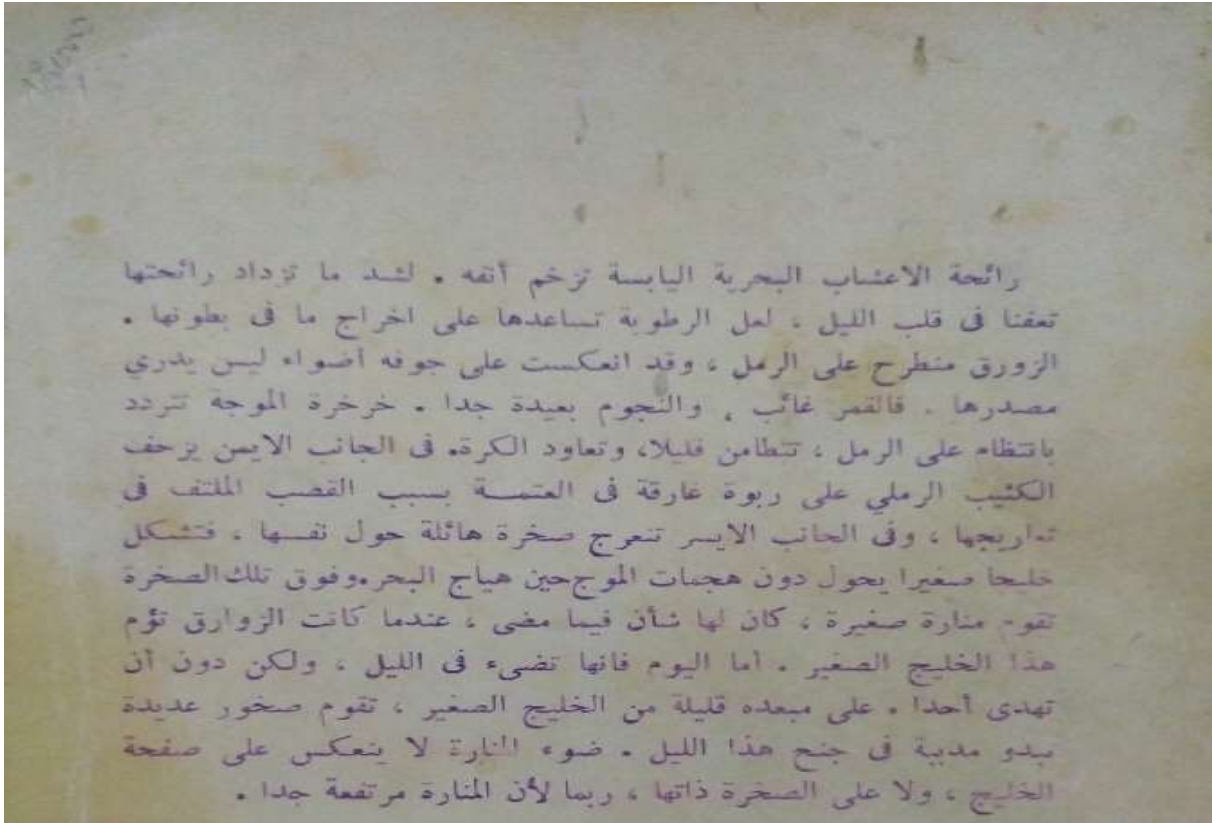 رائحة الاعشاب البحرية اليابسة تزخم أنفه . لشد ما تزداد رائحتها
تعفنا فى قلب الليل ، لعل الرطوبة تساعدها على اخراج ما فى بطونها .
الزورق منطرح على الرمل ، وقد انعكست على جوفه أضواء ليس يدري
مصدرها . فالقمر غائب ، والنجوم بعيدة جدا . خرخرة الموجة تتردد
بانتظام على الرمل ، تتطامن قليلا، وتعاود الكرة. فى الجانب الايمن يزحف
الكثيب الرملي على ربوة غارقة فى العتمة بسبب القصب الملتف فى
تعاريجها ، وفى الجانب الايسر تنعرج صخرة هائلة حول نفسها ، فتشكل
خليجا صغيرا يحول دون هجمات الموج حين هياج البحر.وفوق تلك الصخرة
تقوم منارة صغيرة ، كان لها شأن فيما مضى ، عندما كانت الزوارق تؤم
هذا الخليج الصغير . أما اليوم فانها تضىء فى الليل ، ولكن دون أن
تهدى أحدا . على مبعده قليلة من الخليج الصغير ، تقوم صخور عديدة
تبدو مدببة فى جنح هذا الليل . ضوء المنارة لا ينعكس على صفحة
الخليج ، ولا على الصخرة ذاتها ، ربما لأن المنارة مرتفعة جدا .